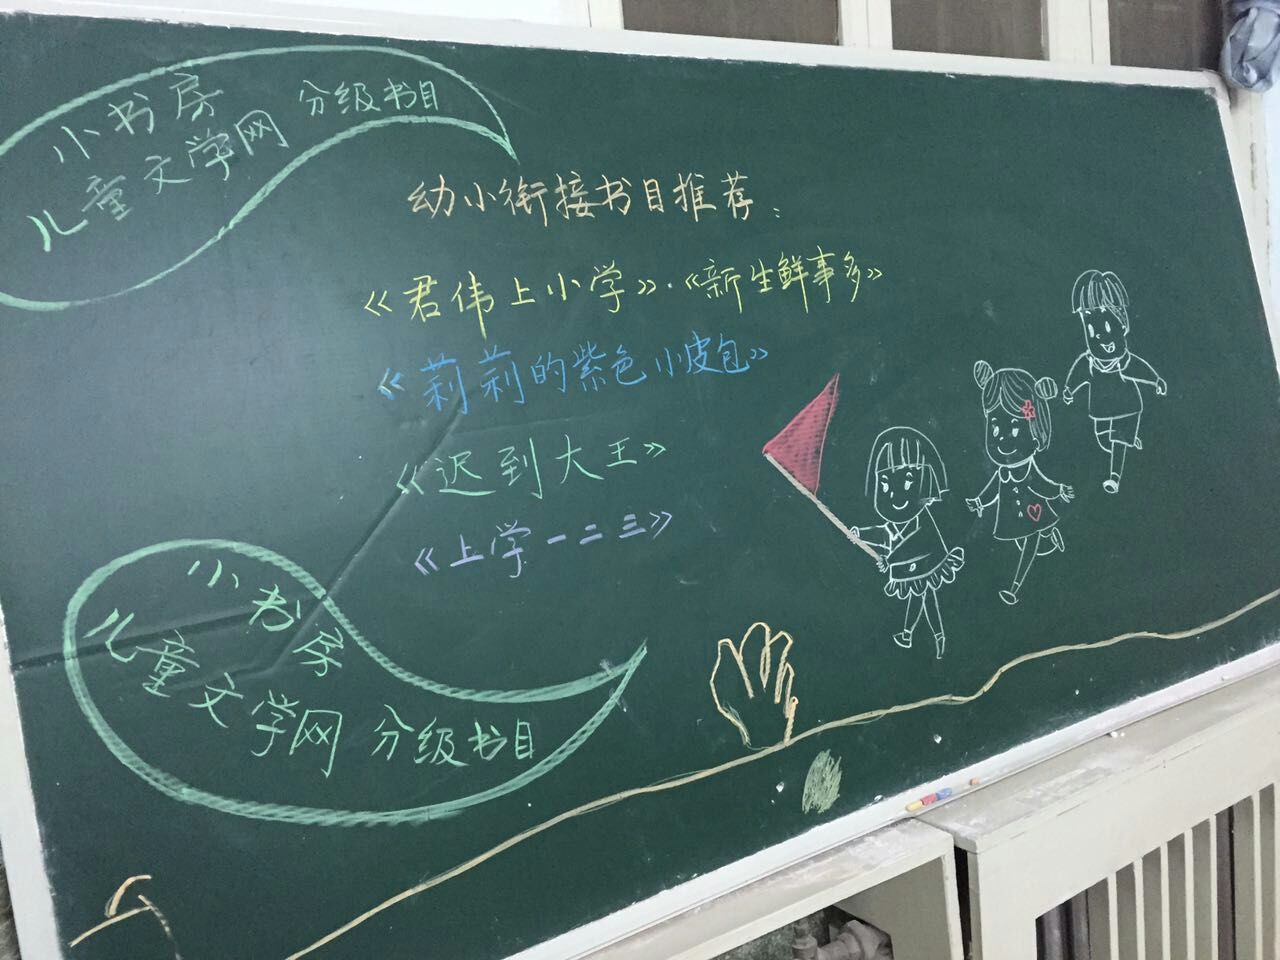 小书房
儿童文学网 分级书目
幼小衔接书目推荐：
《君伟上小学》·《新生鲜事多》
《莉莉的紫色小皮包》
《迟到大王》
《上学一二三》
小书房
儿童文学网 分级书目